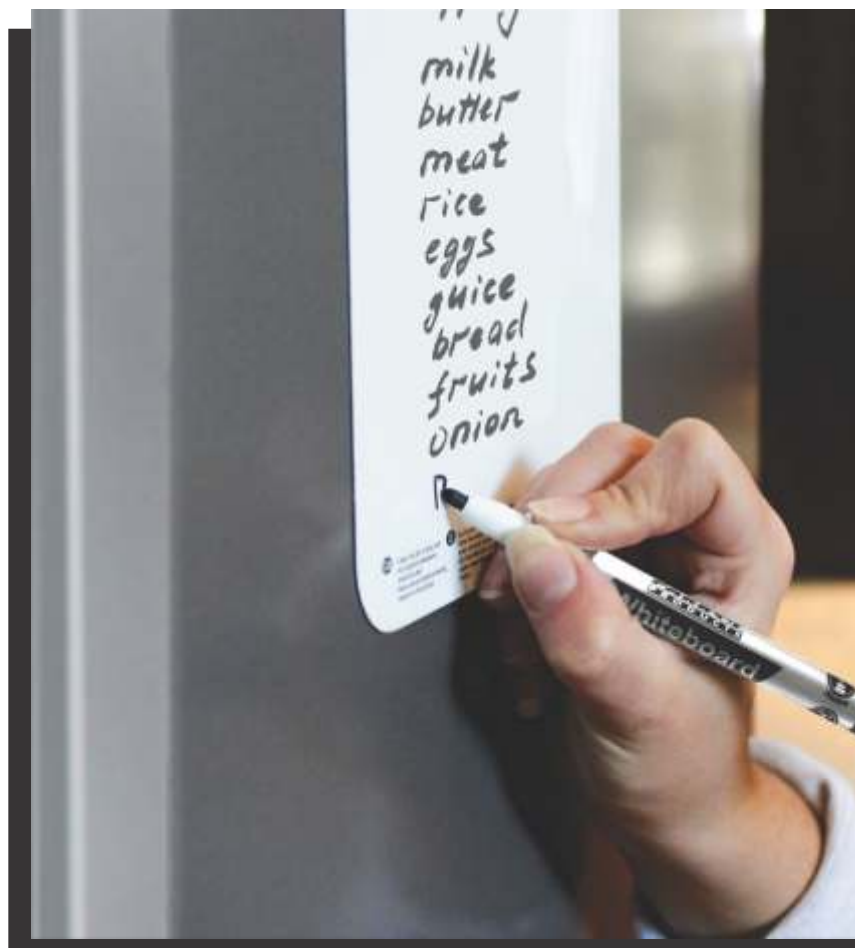 milk
butter
meat
rice
eggs
guice
bread
fruits
onion
Whiteboard